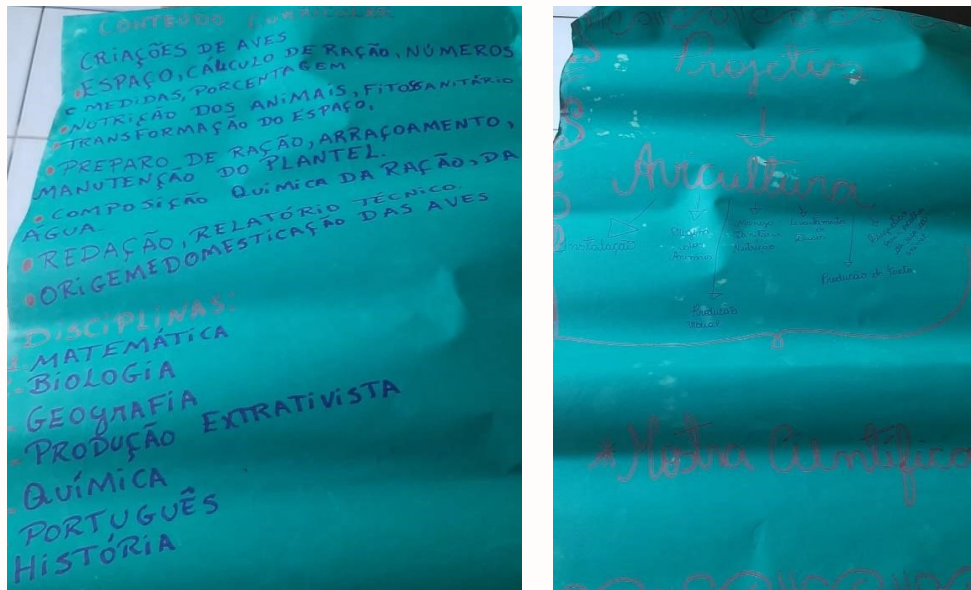 CONTEÚDO CURRICULAR
CRIAÇÕES DE AVES
ESPAÇO, CÁLCULO DE RAÇÃO, NÚMEROS
E MEDIDAS, PORCENTAGEM
NUTRIÇÃO DOS ANIMAIS, FITOSSANITÁRIO
TRANSFORMAÇÃO DO ESPAÇO,
PREPARO DE RAÇÃO, ARRAÇOAMENTO,
MANUTENÇÃO DO PLANTEL.
COMPOSIÇÃO QUÍMICA DA RAÇÃO, DA
ÁGUA.
REDAÇÃO, RELATÓRIO TÉCNICO.
ORIGEM E DOMESTICAÇÃO DAS AVES
DISCIPLINAS:
MATEMÁTICA
BIOLOGIA
GEOGRAFIA
PRODUÇÃO EXTRATIVISTA
QUÍMICA
PORTUGUÊS
HISTÓRIA
Projeto
Avicultura
Instalação
Produção de texto
Produção
Mostra Científica